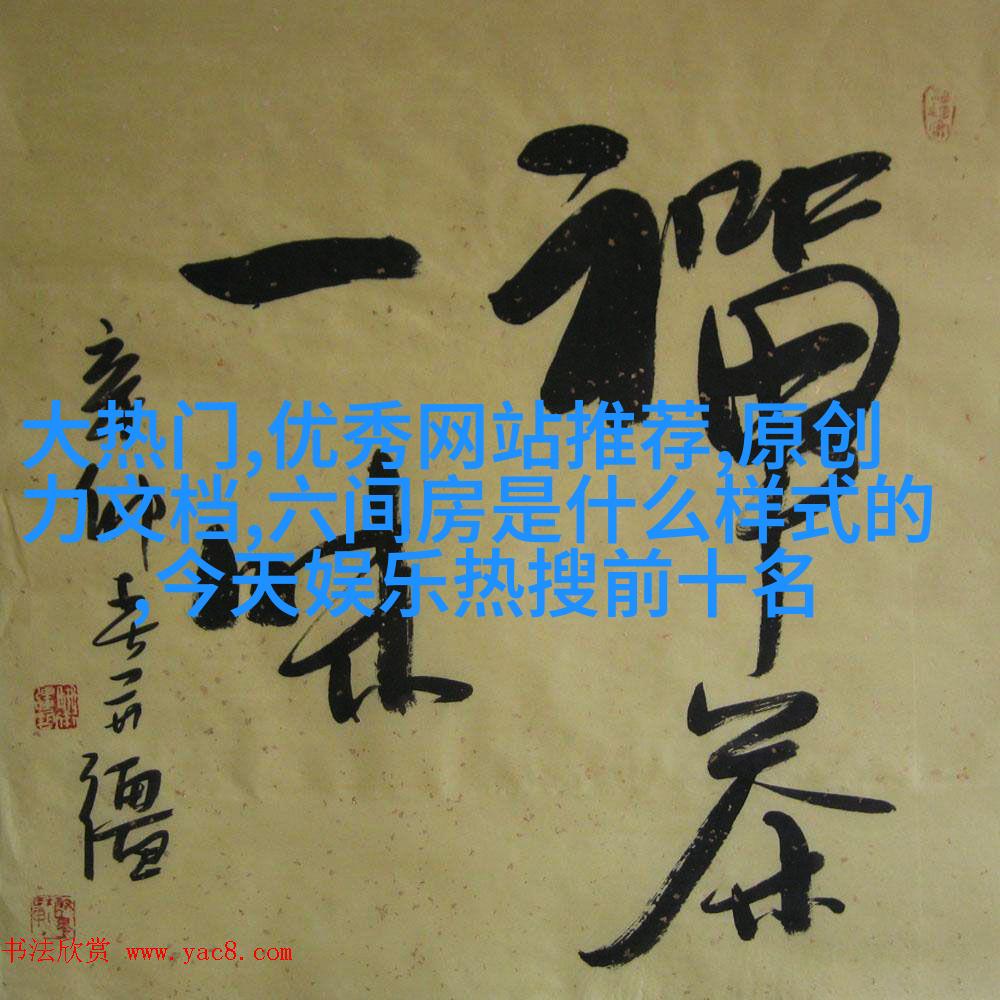 禅茶
一味
大热门,优秀网站推荐,原创
力文档,六间房是什么样式的
,今天娱乐热搜前十名
书法欣赏 www.yac8.com